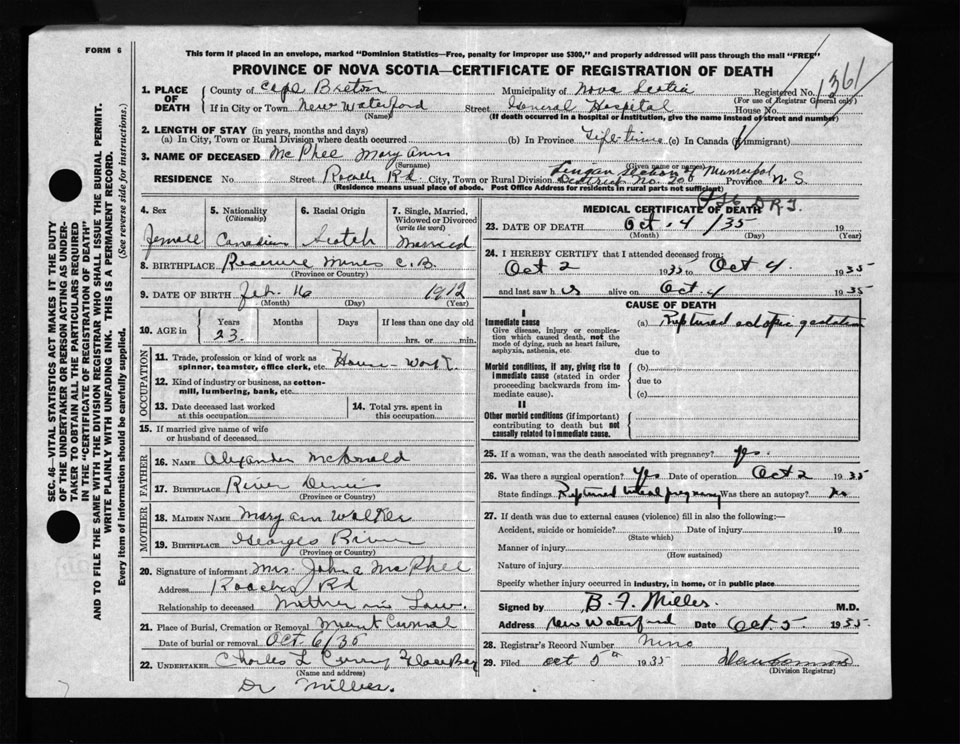 FORM 6
This form if placed in an envelope, marked "Dominion Statistics—Free, penalty for improper use $300," and properly addressed will pass through the mail "FREE"
PROVINCE OF NOVA SCOTIA—CERTIFICATE OF REGISTRATION OF DEATH
1361
1. PLACE OF DEATH { County of Cape Breton Municipality of Nova Scotia Registered No.
(For use of Registrar General only)
If in City or Town New Waterford Street General Hospital House No.
(Name) (If death occurred in a hospital or institution, give the name instead of street and number)
2. LENGTH OF STAY (in years, months and days)
(a) In City, Town or Rural Division where death occurred (b) In Province Life time (c) In Canada (if immigrant)
3. NAME OF DECEASED McPhee Mary Ann
(Surname) (Given name or names)
Lingan Section of Municipal
RESIDENCE No. Street Roaches Rd. City, Town or Rural Division District No. 20 Province N. S.
(Residence means usual place of abode. Post Office Address for residents in rural parts not sufficient)
4. Sex 5. Nationality (Citizenship) 6. Racial Origin 7. Single, Married, Widowed or Divorced (write the word)
female Canadian Scotch Married
8. BIRTHPLACE Reserve Mines C.B.
(Province or Country)
9. DATE OF BIRTH Feb. 16 1912
(Month) (Day) (Year)
10. AGE in { Years Months Days If less than one day old
23. hrs. or min.
OCCUPATION
11. Trade, profession or kind of work as spinner, teamster, office clerk, etc. House-Work
12. Kind of industry or business, as cotton-mill, lumbering, bank, etc.
13. Date deceased last worked at this occupation 14. Total yrs. spent in this occupation
15. If married give name of wife or husband of deceased
FATHER
16. NAME Alexander McDonald
17. BIRTHPLACE River Denis
(Province or Country)
MOTHER
18. MAIDEN NAME Mary Ann Walker
19. BIRTHPLACE Georges River
(Province or Country)
20. Signature of informant Mrs. John A McPhee
Address Roaches Rd
Relationship to deceased Mother in Law.
21. Place of Burial, Cremation or Removal Mount Carmel
Date of burial or removal Oct 6/35
22. UNDERTAKER Charles L Curry Glace Bay
(Name and address)
Dr Millies.
MEDICAL CERTIFICATE OF DEATH
23. DATE OF DEATH Oct. 4 /35 19
(Month) (Day) (Year)
24. I HEREBY CERTIFY that I attended deceased from:
Oct 2 1935 to Oct 4. 1935
and last saw her alive on Oct. 4 1935
CAUSE OF DEATH
I
Immediate cause (a) Ruptured ectopic gestation
Give disease, injury or complication which caused death, not the mode of dying, such as heart failure, asphyxia, asthenia, etc.
due to
Morbid conditions, if any, giving rise to immediate cause (stated in order proceeding backwards from immediate cause).
(b)
due to
(c)
II
Other morbid conditions (if important) contributing to death but not causally related to immediate cause.
25. If a woman, was the death associated with pregnancy? yes.
26. Was there a surgical operation? Yes Date of operation Oct 2 1935
State findings Ruptured tubal pregnancy Was there an autopsy? No
27. If death was due to external causes (violence) fill in also the following:—
Accident, suicide or homicide? Date of injury 19
(State which)
Manner of injury
(How sustained)
Nature of injury
Specify whether injury occurred in industry, in home, or in public place
Signed by B. F. Miller. M.D.
Address New Waterford Date Oct. 5. 1935
28. Registrar's Record Number Nine
29. Filed Oct 5th 1935
(Division Registrar)
SEC. 46—VITAL STATISTICS ACT MAKES IT THE DUTY
OF THE UNDERTAKER OR PERSON ACTING AS UNDER-
TAKER TO OBTAIN ALL THE PARTICULARS REQUIRED
IN THE "CERTIFICATE OF REGISTRATION OF DEATH"
AND TO FILE THE SAME WITH THE DIVISION REGISTRAR WHO SHALL ISSUE THE BURIAL PERMIT.
WRITE PLAINLY WITH UNFADING INK. THIS IS A PERMANENT RECORD.
Every item of information should be carefully supplied. (See reverse side for instructions.)